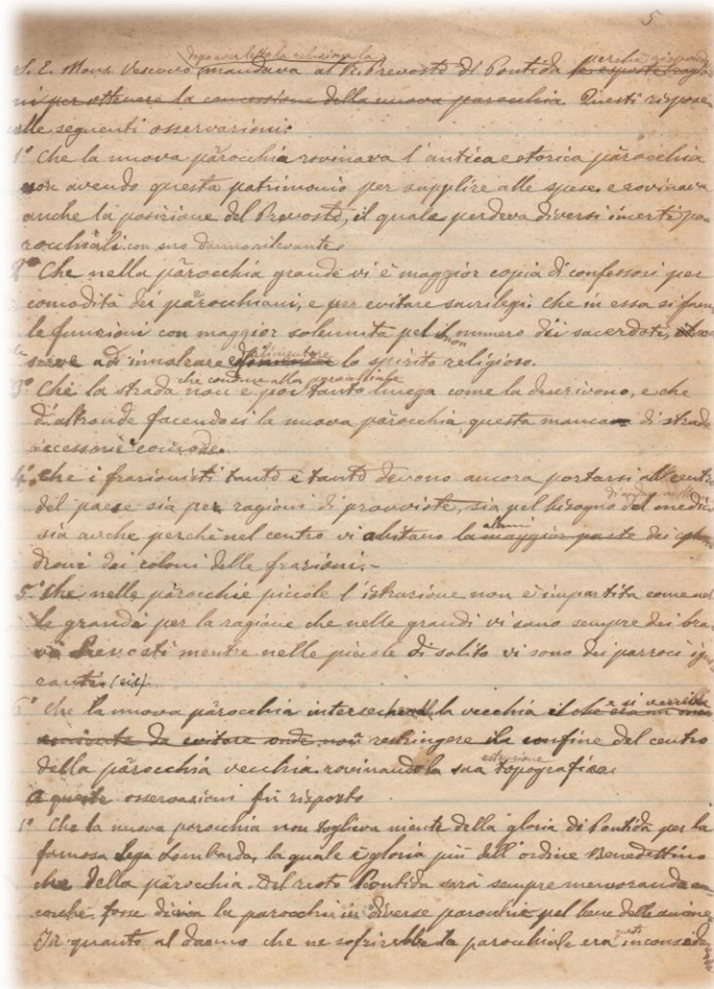 5
dopo aver letto la relazione la
S. E. Mons. Vescovo mandava al R. Prevosto di Pontida perchè rispond
ni per ottenere la concessione della nuova parochia. Questi rispose
alle seguenti osservazioni:
1° Che la nuova parochia rovinava l'antica e storica parochia
non avendo questa patrimonio per supplire alle spese, e rovinava
anche la posizione del Prevosto, il quale perdeva diversi incerti pa-
rochiali con suo danno rilevante.
2° Che nella parochia grande vi è maggior copia di confessori per
comodità dei parochiani, e per evitare sacrilegi; che in essa si fanno
le funzioni con maggior solennità pel numero dei sacerdoti,
serve ad innalzare ed alimentare lo spirito religioso.
che conduce alla parochiale
3° Che la strada non è poi tanto lunga come la descrivono, e che
d'altronde facendosi la nuova parochia, questa manca di strade
accessorie comode.
4° che i frazionisti tanto e tanto devono ancora portarsi al centro
del paese sia per ragioni di provviste, sia pel bisogno del medico
sia anche perchè nel centro vi abitano alcuni la maggior parte dei
droni dei coloni delle frazioni.-
5° Che nelle parochie piccole l'istruzione non è impartita come nel
le grandi per la ragione che nelle grandi vi sono sempre dei bra
vi Prevosti mentre nelle piccole di solito vi sono dei parroci ig
ranti (sic).
6° che la nuova parochia la vecchia il che si verrebbe
da evitare onde non restringere il confine del centro
della parochia vecchia rovinando la sua estensione topografica.
A queste osservazioni fu risposto
1° Che la nuova parochia non toglieva niente della gloria di Pontida per la
famosa Lega Lombarda, la quale è gloria più dell'ordine Benedettino
che della parochia. Del resto Pontida sarà sempre memoranda an-
corchè fosse divisa la parochia in diverse parochie pel bene delle anime.
In quanto al danno che ne soffrirebbe la parochiale era questo